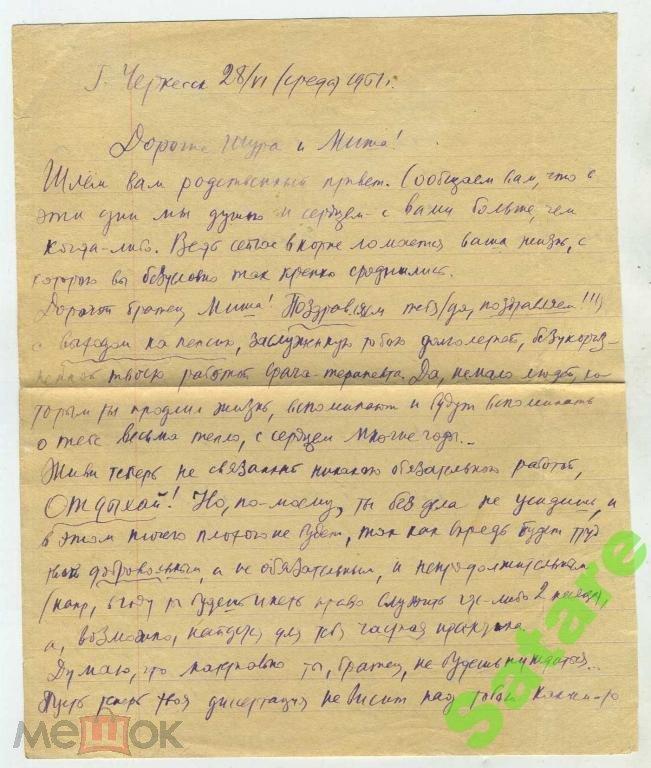 Г. Черкесск 28/VI (среда) 1961 г.
Дорогие Шура и Миша!
Шлём вам родственный привет. Сообщаем вам, что в
эти дни мы душою и сердцем - с вами больше, чем
когда-либо. Ведь сейчас в корне ломается ваша жизнь, с
которою вы безусловно так крепко сроднились.
Дорогой братец, Миша! Поздравляем тебя (да, поздравляем!!!)
с выходом на пенсию, заслуженную тобою долголетней, безукориз-
ненной твоею работой врача-терапевта. Да, немало людей, ко-
торым ты продлил жизнь, вспоминают и будут вспоминать
о тебе весьма тепло, с сердцем многие годы...
Живи теперь не связанный никакою обязательною работой,
отдыхай! Но, по-моему, ты без дела не усидишь, и
в этом ничего плохого не будет, так как впредь будет труд
твой добровольным, а не обязательным, и непродолжительным
(напр, в году ты будешь иметь право служить где-либо 2 месяца,
а, возможно, найдется для тебя частная практика
Думаю, что материально ты, братец, не будешь нуждаться...
Пусть теперь твоя диссертация не висит над тобой каким-то
мешок
Satare